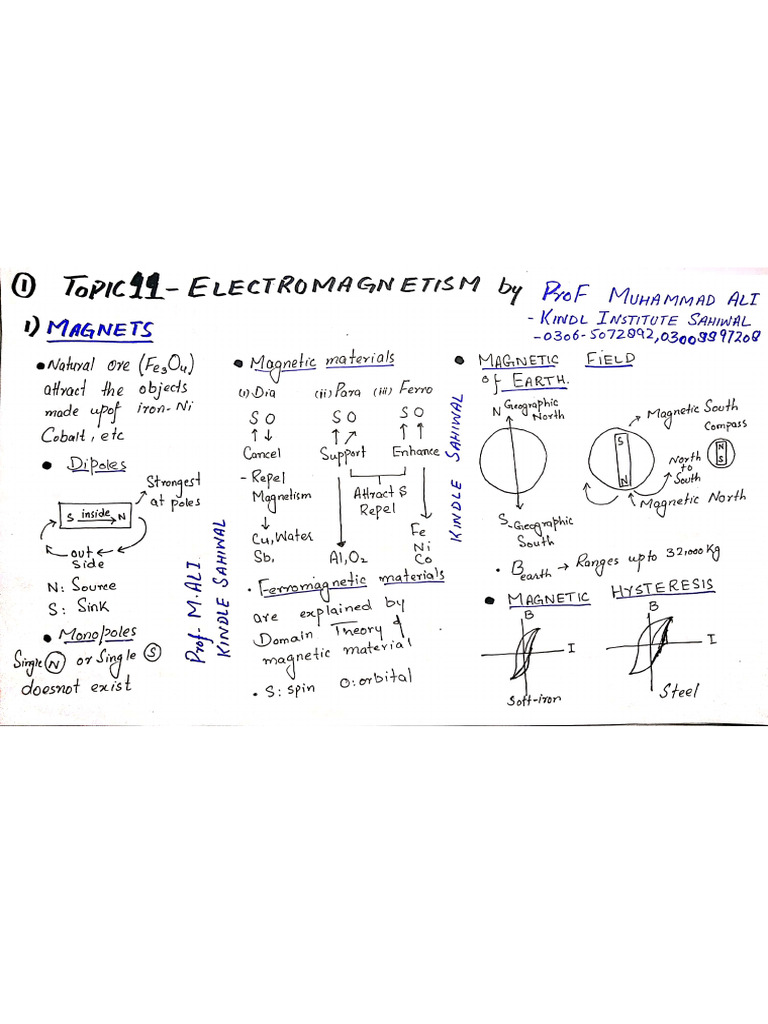 ① TOPIC 11 - ELECTROMAGNETISM by Prof MUHAMMAD ALI
- KINDL INSTITUTE SAHIWAL
- 0306-5072092, 03008997208
1) MAGNETS
• Natural ore (Fe3O4)
attract the objects
made upof iron-Ni
Cobalt, etc
• Dipoles
Strongest
at poles
S inside N
out
side
N: Source
S: Sink
• Monopoles
Single N or Single S
doesnot exist
Prof- M.ALI
KINDLE SAHIWAL
• Magnetic materials
(i) Dia (ii) Para (iii) Ferro
S O S O S O
↑ ↓ ↑ ↗ ↑ ↑
Cancel Support Enhance
- Repel
Magnetism
Attract &
Repel
↓
Cu, Water
Sb,
Al, O2
Fe
Ni
Co
• Ferromagnetic materials
are explained by
Domain Theory &
magnetic material
• S: spin O: orbital
KINDLE SAHIWAL
• MAGNETIC FIELD
of EARTH.
N Geographic
North
S-Geographic
South
Magnetic South
Compass
S
N
N
S
North
to
South
Magnetic North
• Bearth → Ranges upto 32,000 Kg
• MAGNETIC HYSTERESIS
B
I
Soft-iron
B
I
Steel